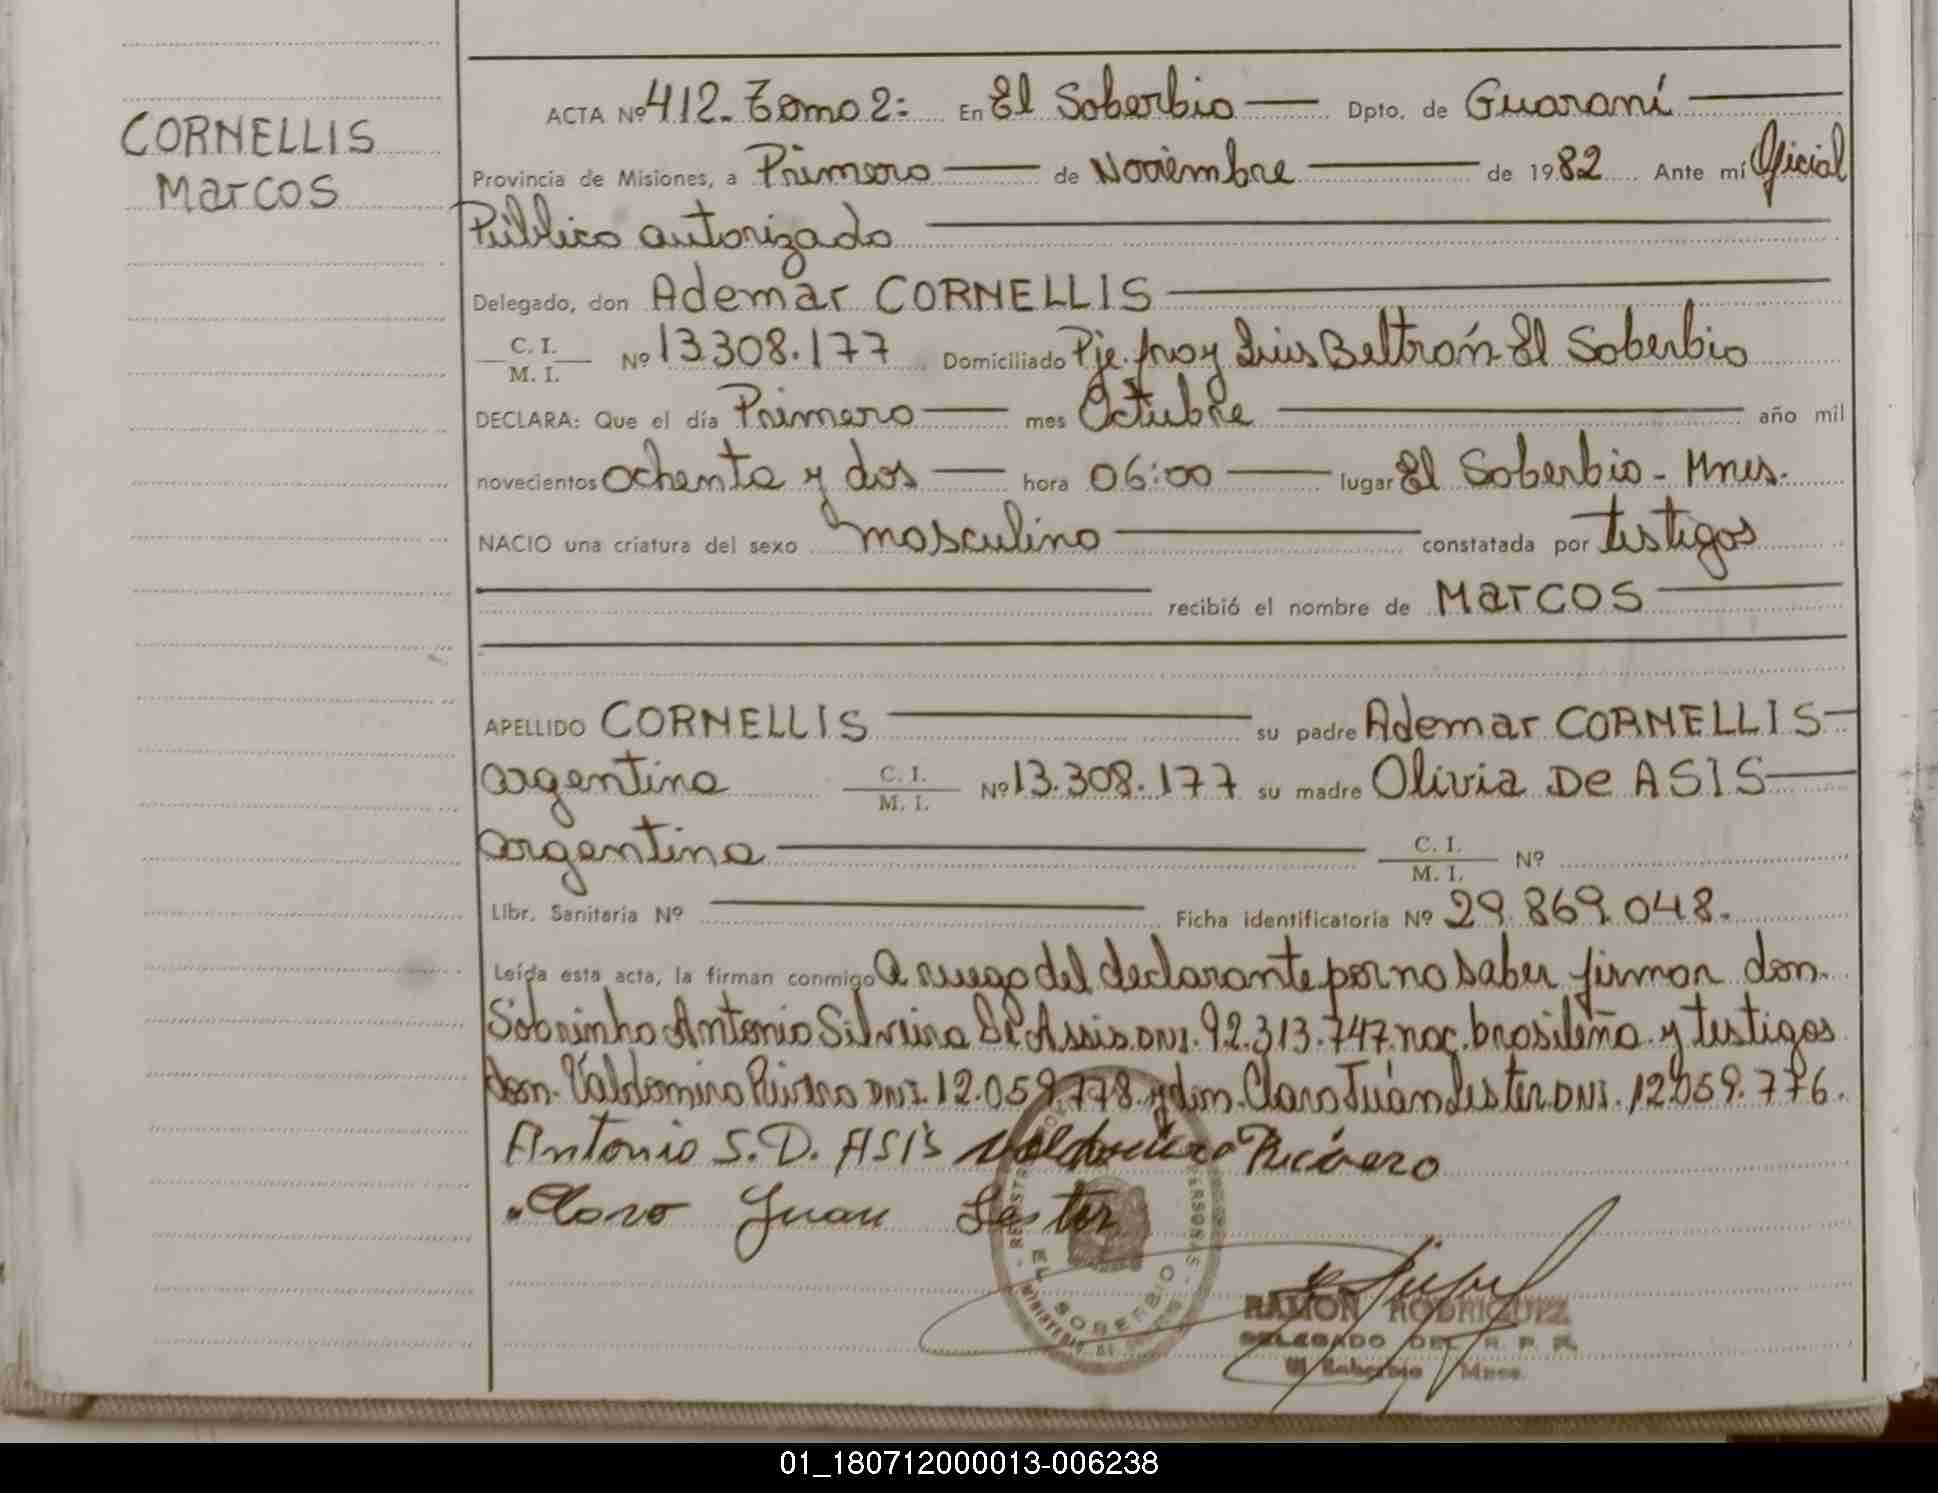 CORNELLIS
Marcos
ACTA Nº 412. Tomo 2: En El Soberbio Dpto. de Guaraní
Provincia de Misiones, a Primero de Noviembre de 1982 Ante mí Oficial
Público autorizado
Delegado, don Ademar CORNELLIS
C. I.
M. I. Nº 13.308.177 Domiciliado Pje. fray Luis Beltrán El Soberbio
DECLARA: Que el día Primero mes Octubre año mil
novecientos ochenta y dos hora 06:00 lugar El Soberbio - Mnes.
NACIO una criatura del sexo masculino constatada por testigos
recibió el nombre de Marcos
APELLIDO CORNELLIS su padre Ademar CORNELLIS
argentino C. I.
M. I. Nº 13.308.177 su madre Olivia De ASIS
argentina C. I.
M. I. Nº
Libr. Sanitaria Nº Ficha identificatoria Nº 29.869.048.
Leída esta acta, la firman conmigo A ruego del declarante por no saber firmar don.
Sobrinho Antonio Silveira De Assis. DNI. 92.313.747. nac. brasileña y testigos
don. Valdomiro Rivero DNI. 12.059.778. y don. Claro Juán Lester. DNI. 12.059.776.
Antonio S. D. ASIS Valdomiro Rivero
Claro Juan Lester
EL SOBERBIO
RAMON RODRIGUEZ
DELEGADO DEL R. P. P.
El Soberbio Mnes.
01_180712000013-006238